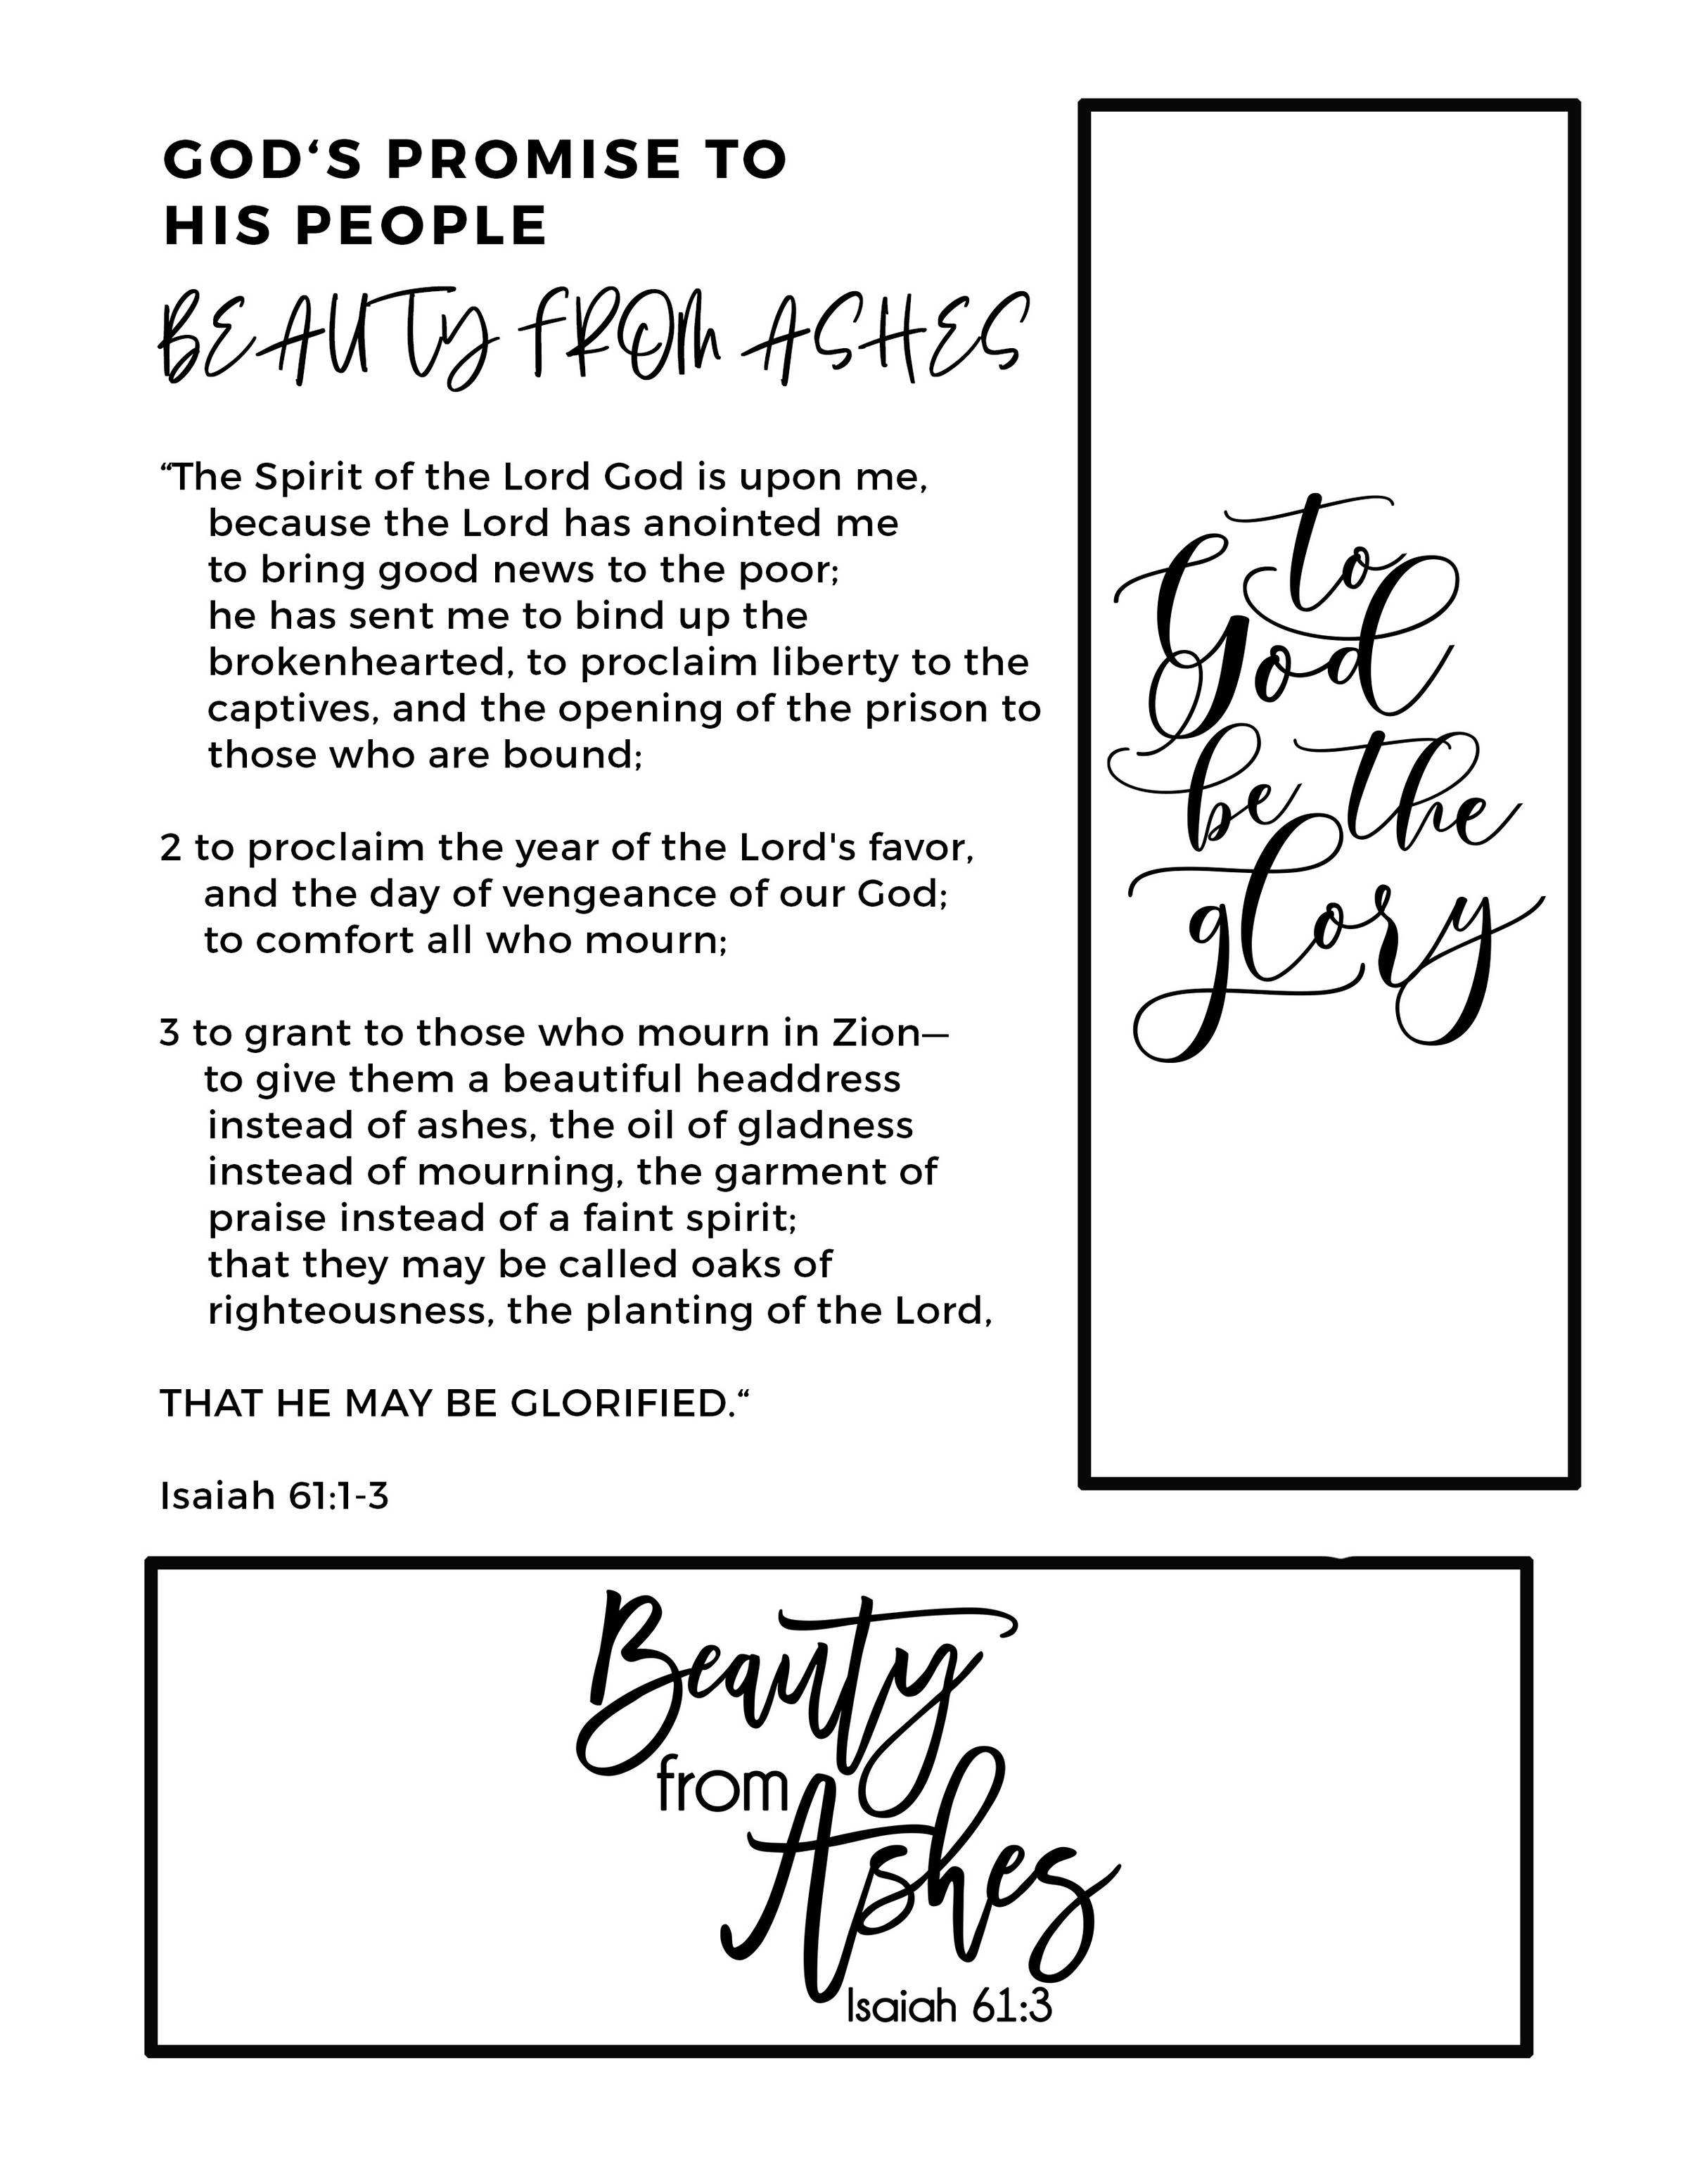 GOD‘S PROMISE TO
HIS PEOPLE
BEAUTY FROM ASHES
“The Spirit of the Lord God is upon me,
because the Lord has anointed me
to bring good news to the poor;
he has sent me to bind up the
brokenhearted, to proclaim liberty to the
captives, and the opening of the prison to
those who are bound;
2 to proclaim the year of the Lord's favor,
and the day of vengeance of our God;
to comfort all who mourn;
3 to grant to those who mourn in Zion—
to give them a beautiful headdress
instead of ashes, the oil of gladness
instead of mourning, the garment of
praise instead of a faint spirit;
that they may be called oaks of
righteousness, the planting of the Lord,
THAT HE MAY BE GLORIFIED.“
Isaiah 61:1-3
to
God
be the
glory
Beauty
from
Ashes
Isaiah 61:3